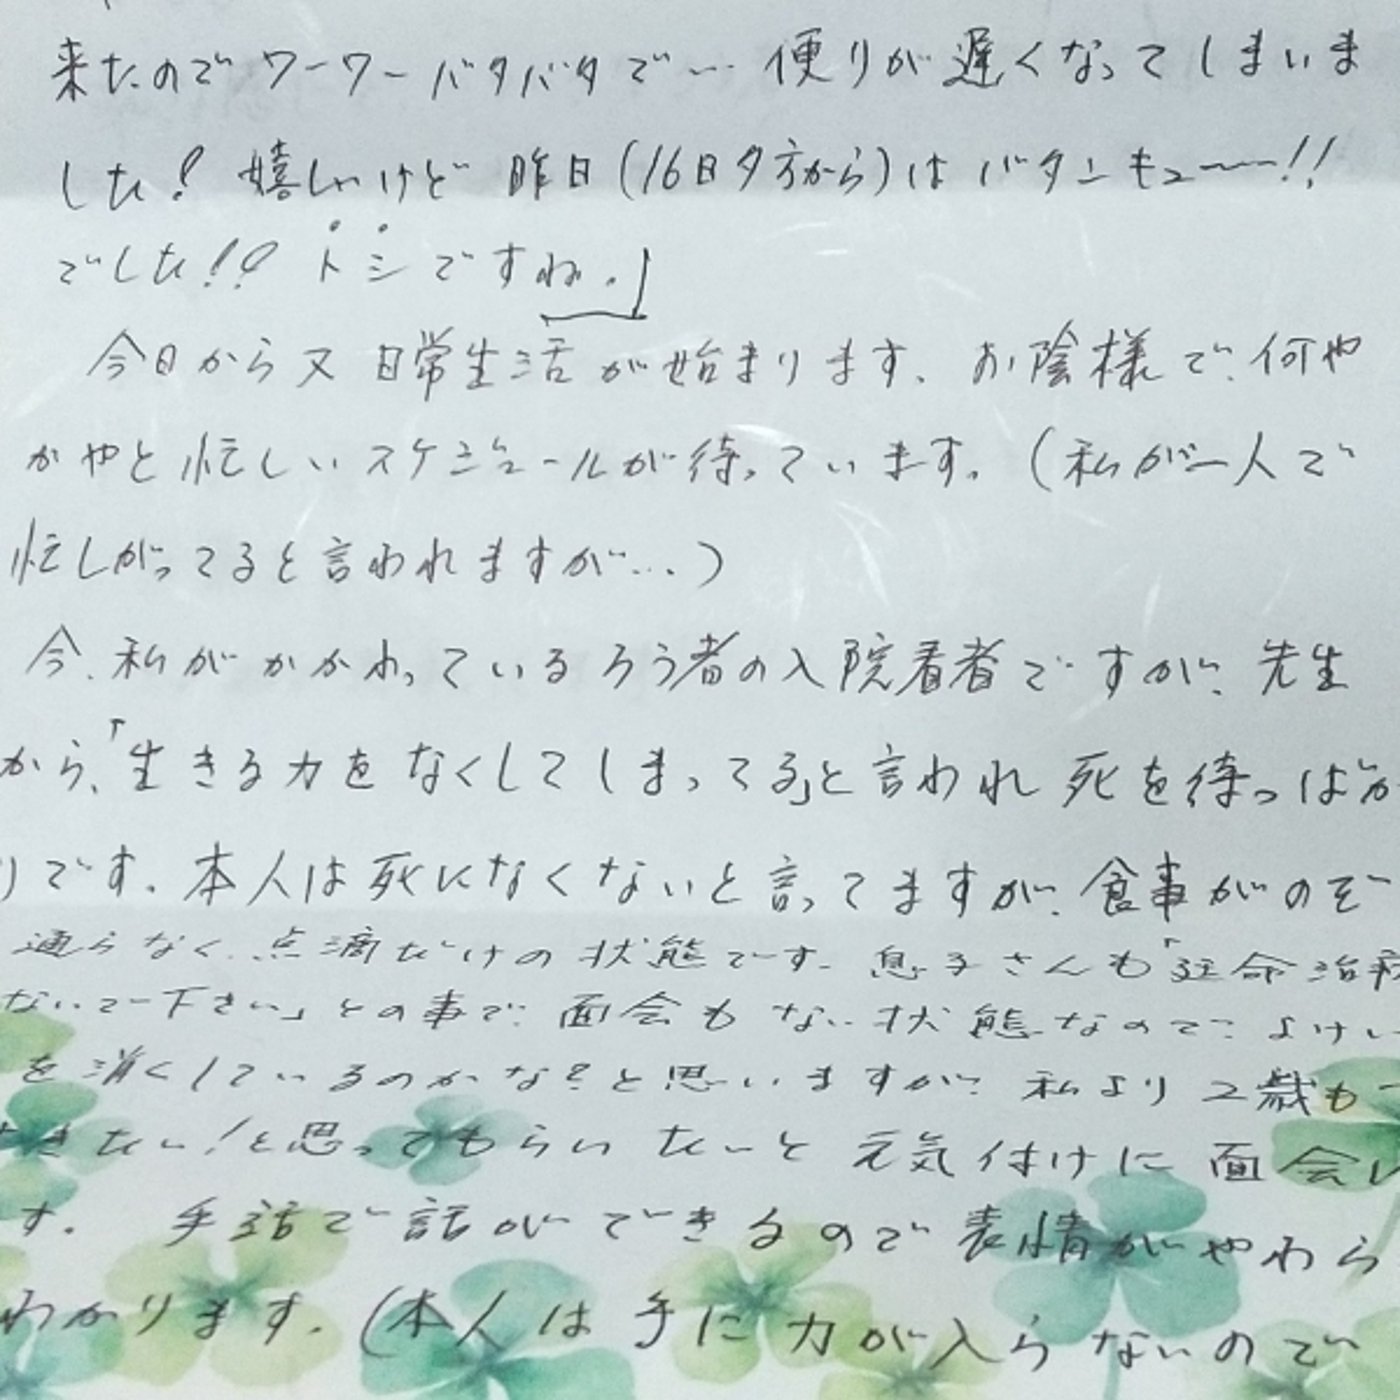 来たのでワーワーバタバタで… 便りが遅くなってしまいま
した! 嬉しいけど 昨日(16日夕方から)は バタンキュ〜〜!!
でした!! トシですね。」
今日から又 日常生活が始まります。お陰様で、何や
かやと忙しいスケジュールが待っています。(私が一人で
忙しがってると言われますが…)
今、私がかかわっているろう者の入院看者ですが、先生
から、「生きる力をなくしてしまってる」と言われ 死を待つばか
りです。本人は死になくないと言ってますが、食事がのど
通らなく、点滴だけの状態です。息子さんも「延命治療
ないで下さい」との事で、面会もない状態なので、よけい
を消くしているのかな?と思いますが、私より2歳も
きたい!と思ってもらいたいと元気付けに面会し
す。 手話で話ができるので表情がやわら
わかります。(本人は手に力が入らないので